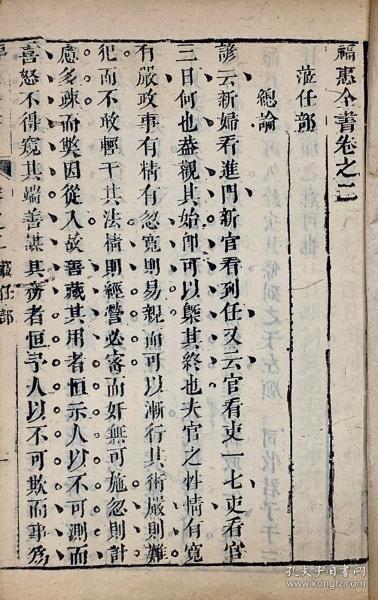 福惠全書卷之二
蒞任部
總論
諺云新婦看進門新官看到任又云官看吏一七吏看官
三日何也蓋觀其始卽可以槩其終也夫官之性情有寬
有嚴政事有精有忽寬則易親而可以漸行其術嚴則難
犯而不敢輕干其法精則經營必審而奸無可施忽則計
慮多疎而獘因從入故善藏其用者恒示人以不可測而
喜怒不得窺其端善謀其務者恒予人以不可欺而事爲
蒞任部
孔夫子旧书网